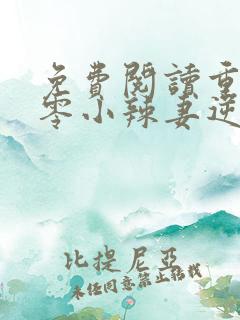 免費閱讀重
零小辣妻逆
比提尼亞
未經同意禁止轉載